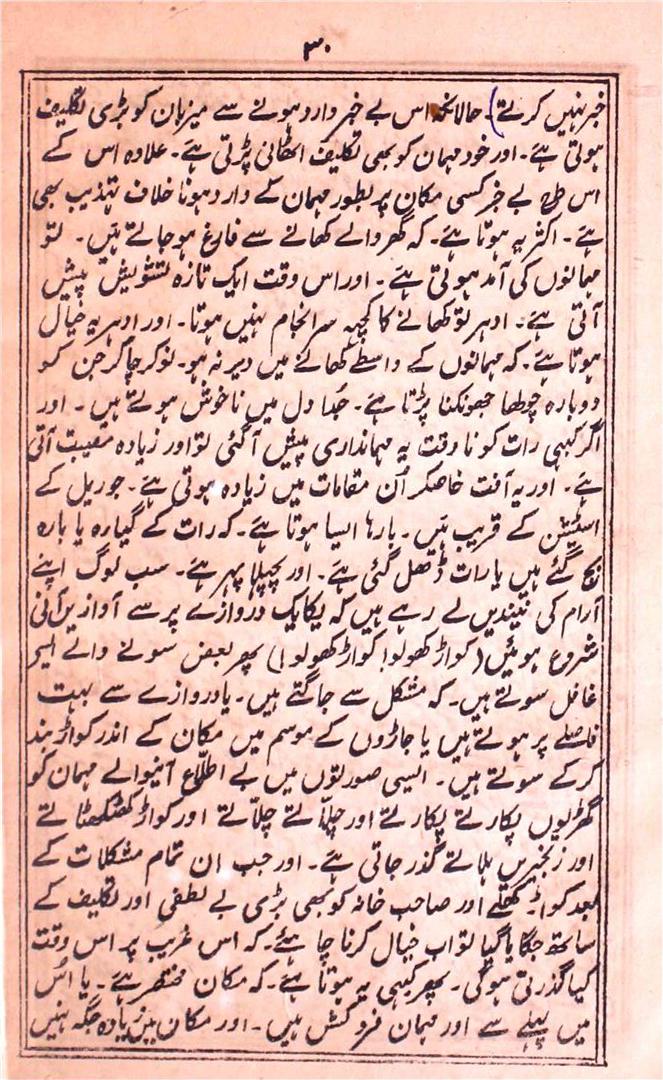 ۳۰
خبر نہیں کرتے) ۔ حالانکہ اس بے خبر وارد ہونے سے میزبان کو بڑی تکلیف
ہوتی ہے۔ اور خود مہمان کو بھی تکلیف اٹھانی پڑتی ہے۔ علاوہ اس کے
اس طرح بے خبر کسی مکان پر بطور مہمان کے وارد ہونا خلاف تہذیب بھی
ہے۔ اکثر یہ ہوتا ہے۔ کہ گھر والے کھانے سے فارغ ہو جاتے ہیں۔ تو
مہمانوں کی آمد ہوتی ہے۔ اور اس وقت ایک تازہ تشویش پیش
آتی ہے۔ ادہر تو کھانے کا کچہہ سرانجام نہیں ہوتا۔ اور ادہر یہ خیال
ہوتا ہے۔ کہ مہمانوں کے واسطے کھانے میں دیر نہ ہو۔ نوکر چاکر جن کو
دوبارہ چولھا جھونکنا پڑتا ہے۔ جُدا دل میں ناخوش ہوتے ہیں۔ اور
اگر کبہی رات کو نا وقت یہ مہمانداری پیش آگئی تو اور زیادہ مصیبت آتی
ہے۔ اور یہ آفت خاصکر اُن مقامات میں زیادہ ہوتی ہے۔ جو ریل کے
اسٹیشن کے قریب ہیں۔ بارہا ایسا ہوتا ہے۔ کہ رات کے گیارہ یا بارہ
بج گئے ہیں یا رات ڈھل گئی ہے۔ اور پچھلا پہر ہے۔ سب لوگ اپنے
آرام کی نیندیں لے رہے ہیں کہ یکایک دروازے پر سے آوازیں آنی
شروع ہوئیں (کواڑ کھولو! کواڑ کھولو!) پھر بعض سونے والے ایسے
غافل سوتے ہیں۔ کہ مشکل سے جاگتے ہیں۔ یا دروازے سے بہت
فاصلے پر ہوتے ہیں یا جاڑوں کے موسم میں مکان کے اندر کواڑ بند
کرکے سوتے ہیں۔ ایسی صورتوں میں بے اطلاع آنیوالے مہمان کو
گھڑیوں پکارتے پکارتے اور چلّاتے چلّاتے اور کواڑ کھٹکھٹاتے
اور زنجیریں ہلاتے گذر جاتی ہے۔ اور جب ان تمام مشکلات کے
بعد کواڑ کھلے اور صاحب خانہ کو بھی بڑی بے لطفی اور تکلیف کے
ساتھ جگایا گیا تو اب خیال کرنا چاہئے۔ کہ اس غریب پر اس وقت
کیا گذرتی ہوگی۔ پھر کبہی یہ ہوتا ہے۔ کہ مکان مختصر ہے۔ یا اُس
میں پہلے سے اور مہمان فروکش ہیں۔ اور مکان میں زیادہ جگہ نہیں